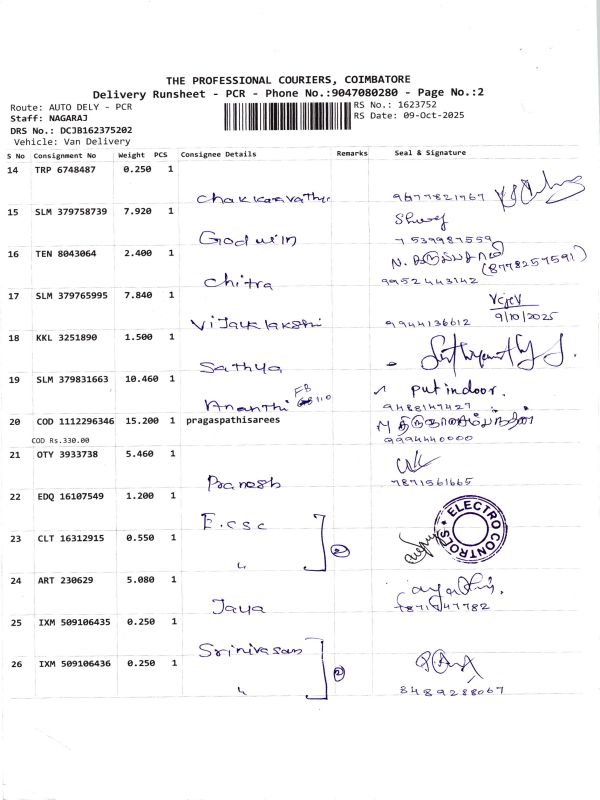 THE PROFESSIONAL COURIERS, COIMBATORE
Delivery Runsheet - PCR - Phone No.:9047080280 - Page No.:2
Route: AUTO DELY - PCR
RS No.: 1623752
Staff: NAGARAJ
RS Date: 09-Oct-2025
DRS No.: DCJB162375202
Vehicle: Van Delivery
S No Consignment No Weight PCS Consignee Details Remarks Seal & Signature
14 TRP 6748487 0.250 1
Chakkaravathi 9677821767
15 SLM 379758739 7.920 1
Godwin 7539987559
16 TEN 8043064 2.400 1
(8778257591)
Chitra 9952443142
17 SLM 379765995 7.840 1
9/10/2025
Vijayalakshi 9944136612
18 KKL 3251890 1.500 1
Sathya
19 SLM 379831663 10.460 1
putindoor.
Ananthi FB 110 9488147427
20 COD 1112296346 15.200 1 pragaspathisarees
COD Rs.330.00 9994440000
21 OTY 3933738 5.460 1
Pranesh 7871561665
22 EDQ 16107549 1.200 1
E.csc
ELECTRO CONTROLS
23 CLT 16312915 0.550 1
" 2
24 ART 230629 5.080 1
Jaya
25 IXM 509106435 0.250 1
Srinivasan
26 IXM 509106436 0.250 1
" 2 8489288067